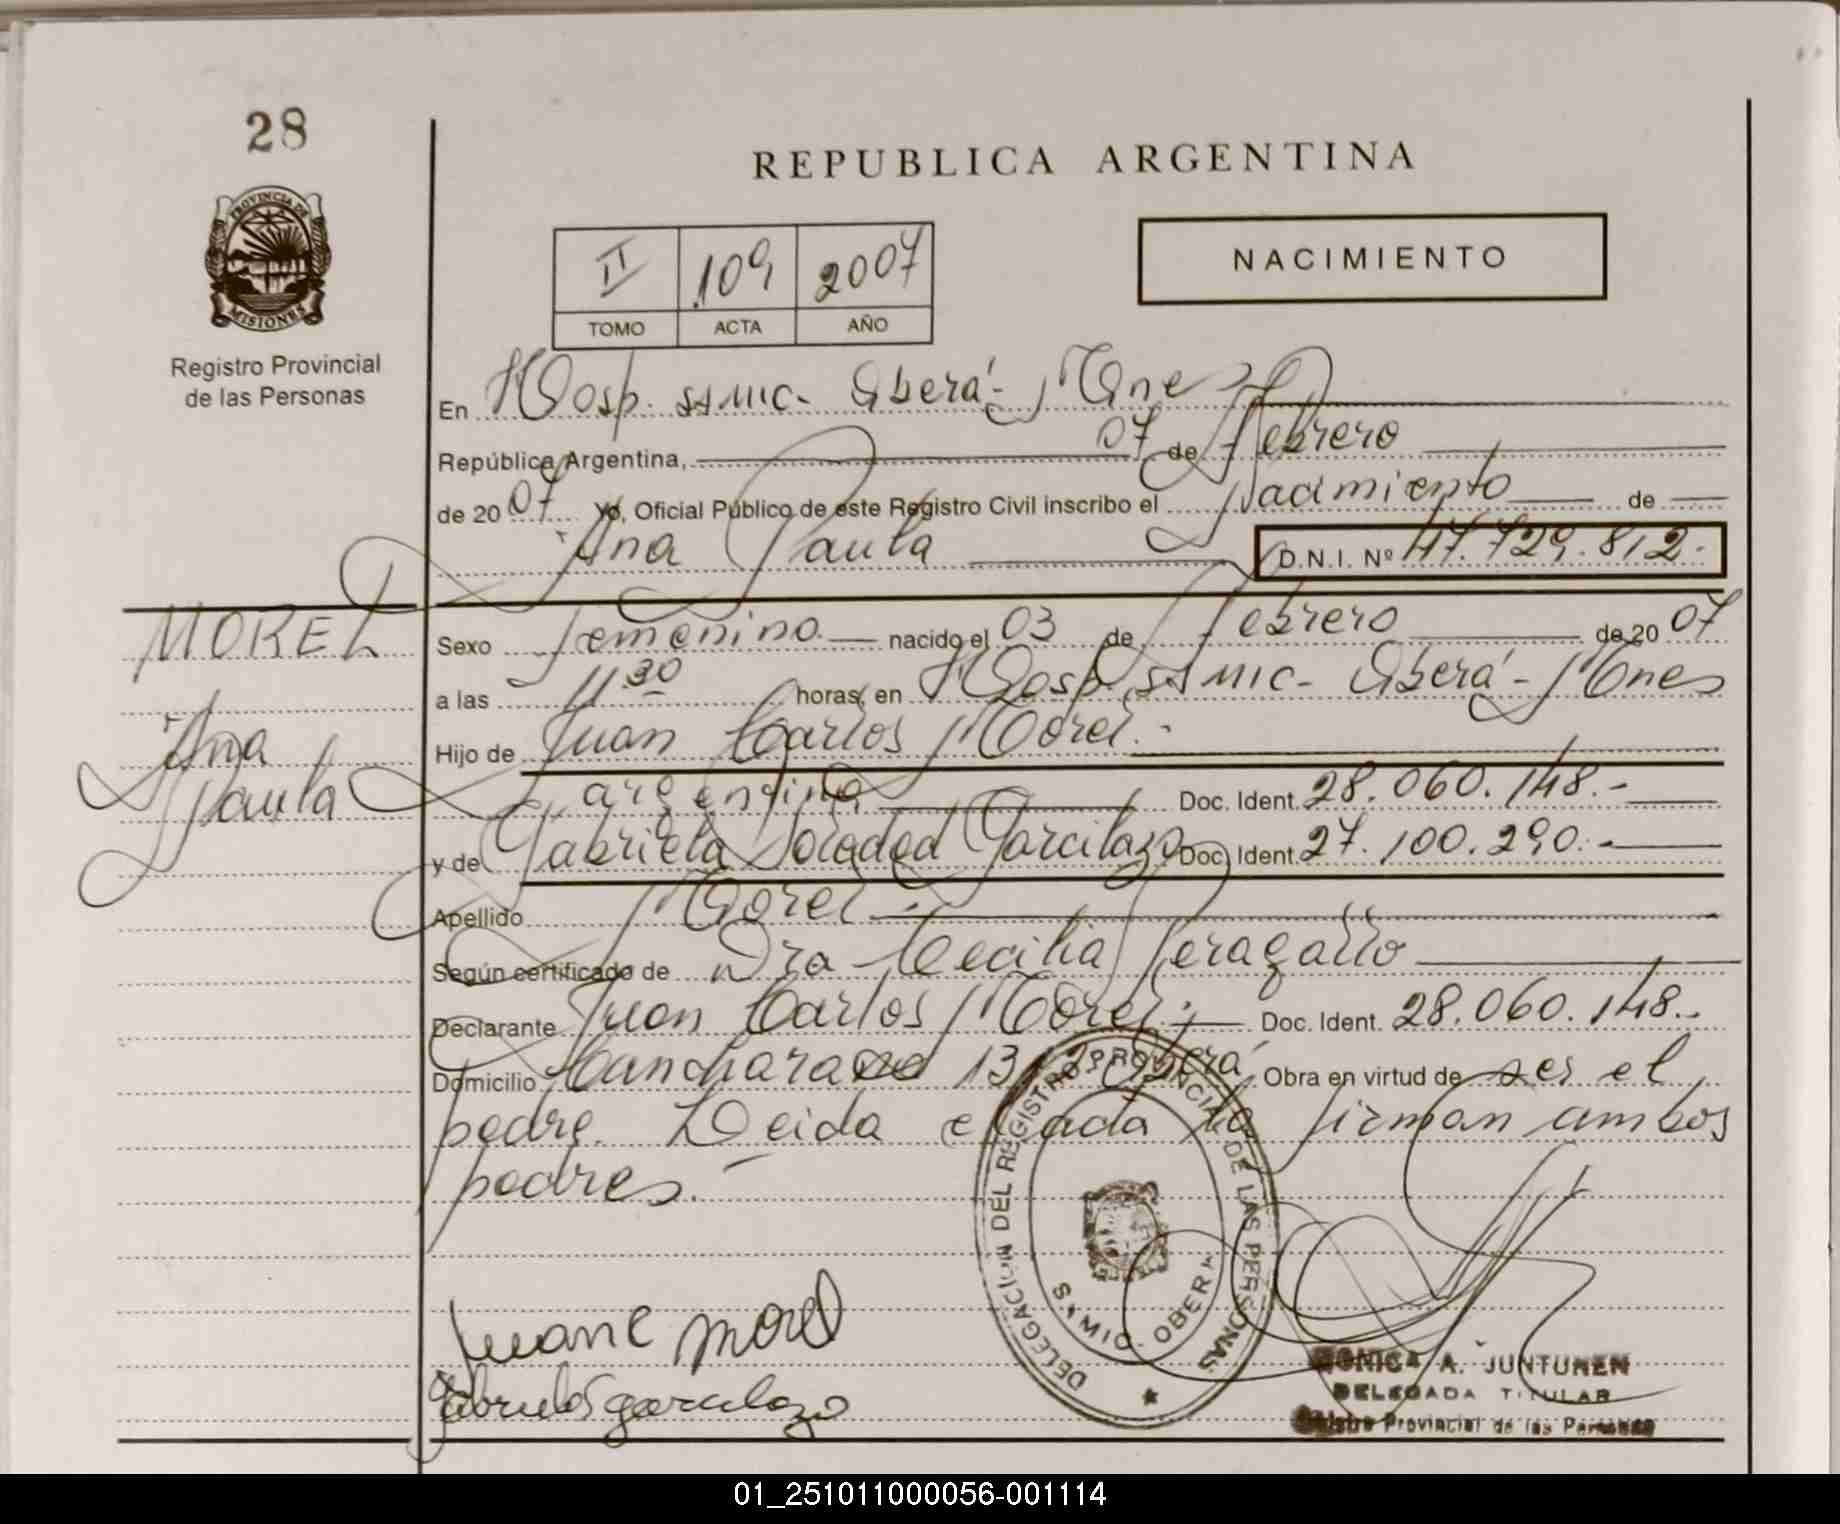 28
PROVINCIA DE
MISIONES
Registro Provincial
de las Personas
REPUBLICA ARGENTINA
II 109 2007
TOMO ACTA AÑO
NACIMIENTO
En Hosp. SAMIC- Oberá- Mnes
República Argentina, 07 de Febrero
de 2007 Yo, Oficial Público de este Registro Civil inscribo el Nacimiento de
Ana Paula D.N.I. Nº 47.729.812.-
MOREL
Ana
Paula
Sexo Femenino nacido el 03 de Febrero de 2007
a las 11.30 horas, en Hosp. SAMIC- Oberá- Mnes
Hijo de Juan Carlos Morel.-
argentina Doc. Ident. 28.060.148.-
y de Gabriela Soledad Garcilazo Doc. Ident. 27.100.290.-
Apellido Morel.-
Según certificado de Dra Cecilia Peragallo
Declarante Juan Carlos Morel.- Doc. Ident. 28.060.148.-
Domicilio Oberá Obra en virtud de ser el
padre. Leída el acta la firman ambos
padres.-
DELEGACION DEL REGISTRO PROVINCIAL DE LAS PERSONAS
SAMIC OBERA
Juan C Morel
Gabriela S garcilazo
MONICA A. JUNTUNEN
DELEGADA TITULAR
Registro Provincial de las Personas
01_251011000056-001114